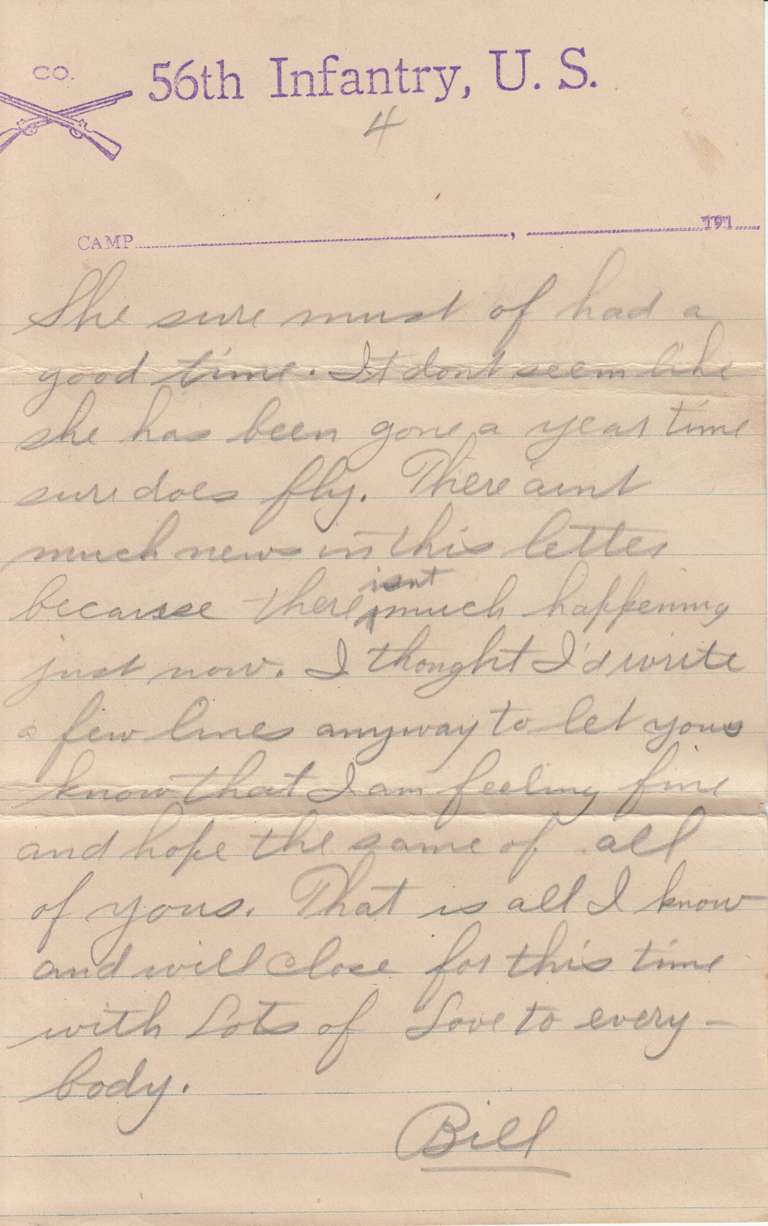 CO. 56th Infantry, U. S.
4
CAMP , 191
She sure must of had a
good time. It dont seem like
she has been gone a year time
sure does fly. There aint
much news in this letter
because there isnt much happening
just now. I thought I'd write
a few lines anyway to let yous
know that I am feeling fine
and hope the same of all
of yous. That is all I know
and will close for this time
with Lots of Love to every-
body.
Bill